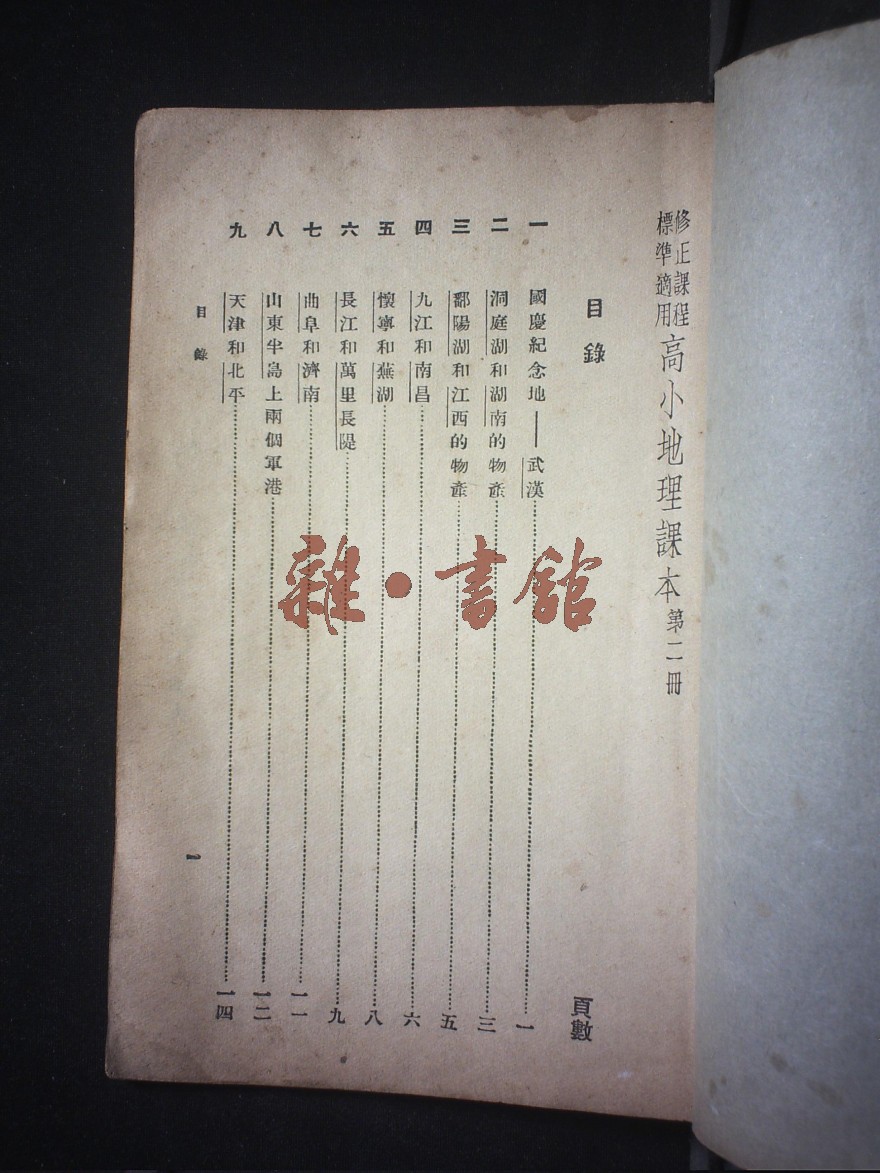 修正課程
標準適用
高小地理課本 第二冊
目錄
頁數
一 國慶紀念地——武漢……一
二 洞庭湖和湖南的物產……三
三 鄱陽湖和江西的物產……五
四 九江和南昌……六
五 懷寧和蕪湖……八
六 長江和萬里長隄……九
七 曲阜和濟南……一一
八 山東半島上兩個軍港……一二
九 天津和北平……一四
目錄
一
雜·書館